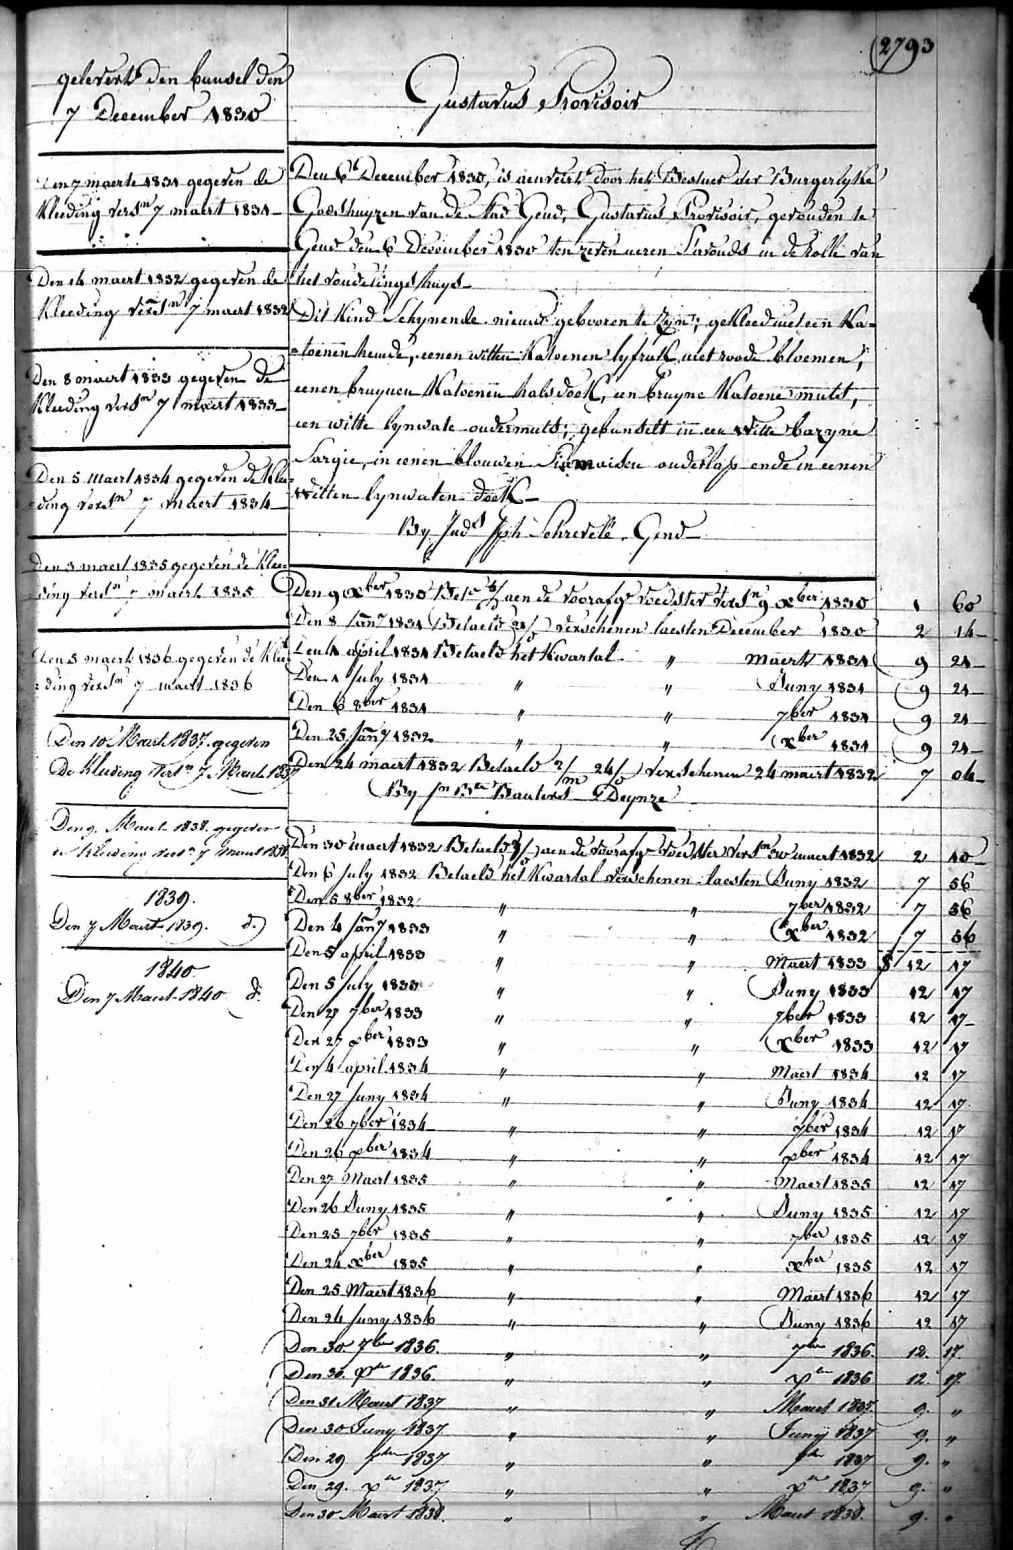 2793
gelevert den bunsel den
7 December 1830
Gustavus Provisoir
Den 7 maerte 1831 gegeven de
kleeding versn 7 maert 1831
Den 14 maert 1832 gegeven de
kleeding versn 7 maert 1832
Den 8 maert 1833 gegeven de
kleeding versn 7 maert 1833
Den 5 maert 1834 gegeven de klee-
ding versn 7 maert 1834
Den 3 maert 1835 gegeven de klee-
ding versn 7 maert 1835
Den 5 maert 1836 gegeven de klee-
ding versn 7 maert 1836
Den 10 Maert 1837 gegeven
De kleeding versn 7 Maert 1837
Den 9 Maert 1838 gegeven
de kleeding versn 7 maert 1838
1839.
Den 7 Maert 1839. d.)
1840.
Den 7 Maert 1840 d.
Den 6 December 1830, is aenveirt door het Bestuer der Burgerlyke
Godshuyzen van de Stad Gend, Gustavus Provisoir, gevonden te
Gend den 6 December 1830 ten zeven ueren s'avonds in de rolle van
het vondelingshuys
Dit kind schynende nieuw gebooren te zyn; gekleed met een Ka-
toenen hemde, eenen witten katoenen lyfrok met roode bloemen,
eenen bruynen katoenen halsdoek, een bruyne katoene muts,
een witte lynwate ondermuts; gebunselt in een witte bazyne
Sargie, in eenen blouwen Siamoisen onderlap ende in eenen
witten lynwaten doek
By Juds Jph Schrevele. Gend
Den 9 xber 1830 Bet. aen de voorafge voedster versn 9 xber 1830 1 60
Den 8 Jany 1831 Betaeld verschenen laesten December 1830 2 14
Den 4 april 1831 Betaeld het kwartal " Maert 1831 9 24
Den 1 July 1831 " " Juny 1831 9 24
Den 6 8ber 1831 " " 7ber 1831 9 24
Den 25 Jany 1832 " " xber 1831 9 24
Den 24 maert 1832 Betaeld 2/m 24/d verschenen 24 maert 1832 7 04
By Bauters Deynze
Den 30 maert 1832 Betaeld aen de voorafge voedster versn 30 maert 1832 2 40
Den 6 July 1832 Betaeld het kwartal verschenen laesten Juny 1832 7 56
Den 5 8ber 1832 " " 7ber 1832 7 56
Den 4 Jany 1833 " " xber 1832 7 56
Den 5 april 1833 " " Maert 1833 12 17
Den 5 July 1833 " " Juny 1833 12 17
Den 27 7ber 1833 " " 7ber 1833 12 17
Den 27 xber 1833 " " xber 1833 12 17
Den 4 april 1834 " " Maert 1834 12 17
Den 27 Juny 1834 " " Juny 1834 12 17
Den 26 7ber 1834 " " 7ber 1834 12 17
Den 26 xber 1834 " " xber 1834 12 17
Den 27 Maert 1835 " " Maert 1835 12 17
Den 26 Juny 1835 " " Juny 1835 12 17
Den 25 7ber 1835 " " 7ber 1835 12 17
Den 24 xber 1835 " " xber 1835 12 17
Den 25 Maert 1836 " " Maert 1836 12 17
Den 24 Juny 1836 " " Juny 1836 12 17
Den 30 7ber 1836. " " 7ber 1836. 12. 17.
Den 30. xber 1836. " " xber 1836 12. 17.
Den 31 Maert 1837 " " Maert 9. "
Den 30 Juny 1837 " " Juny 1837 9. "
Den 29 7ber 1837 " " 7ber 1837 9. "
Den 29. xber 1837 " " xber 1837 9. "
Den 30 Maert 1838. " " Maert 1838. 9. "